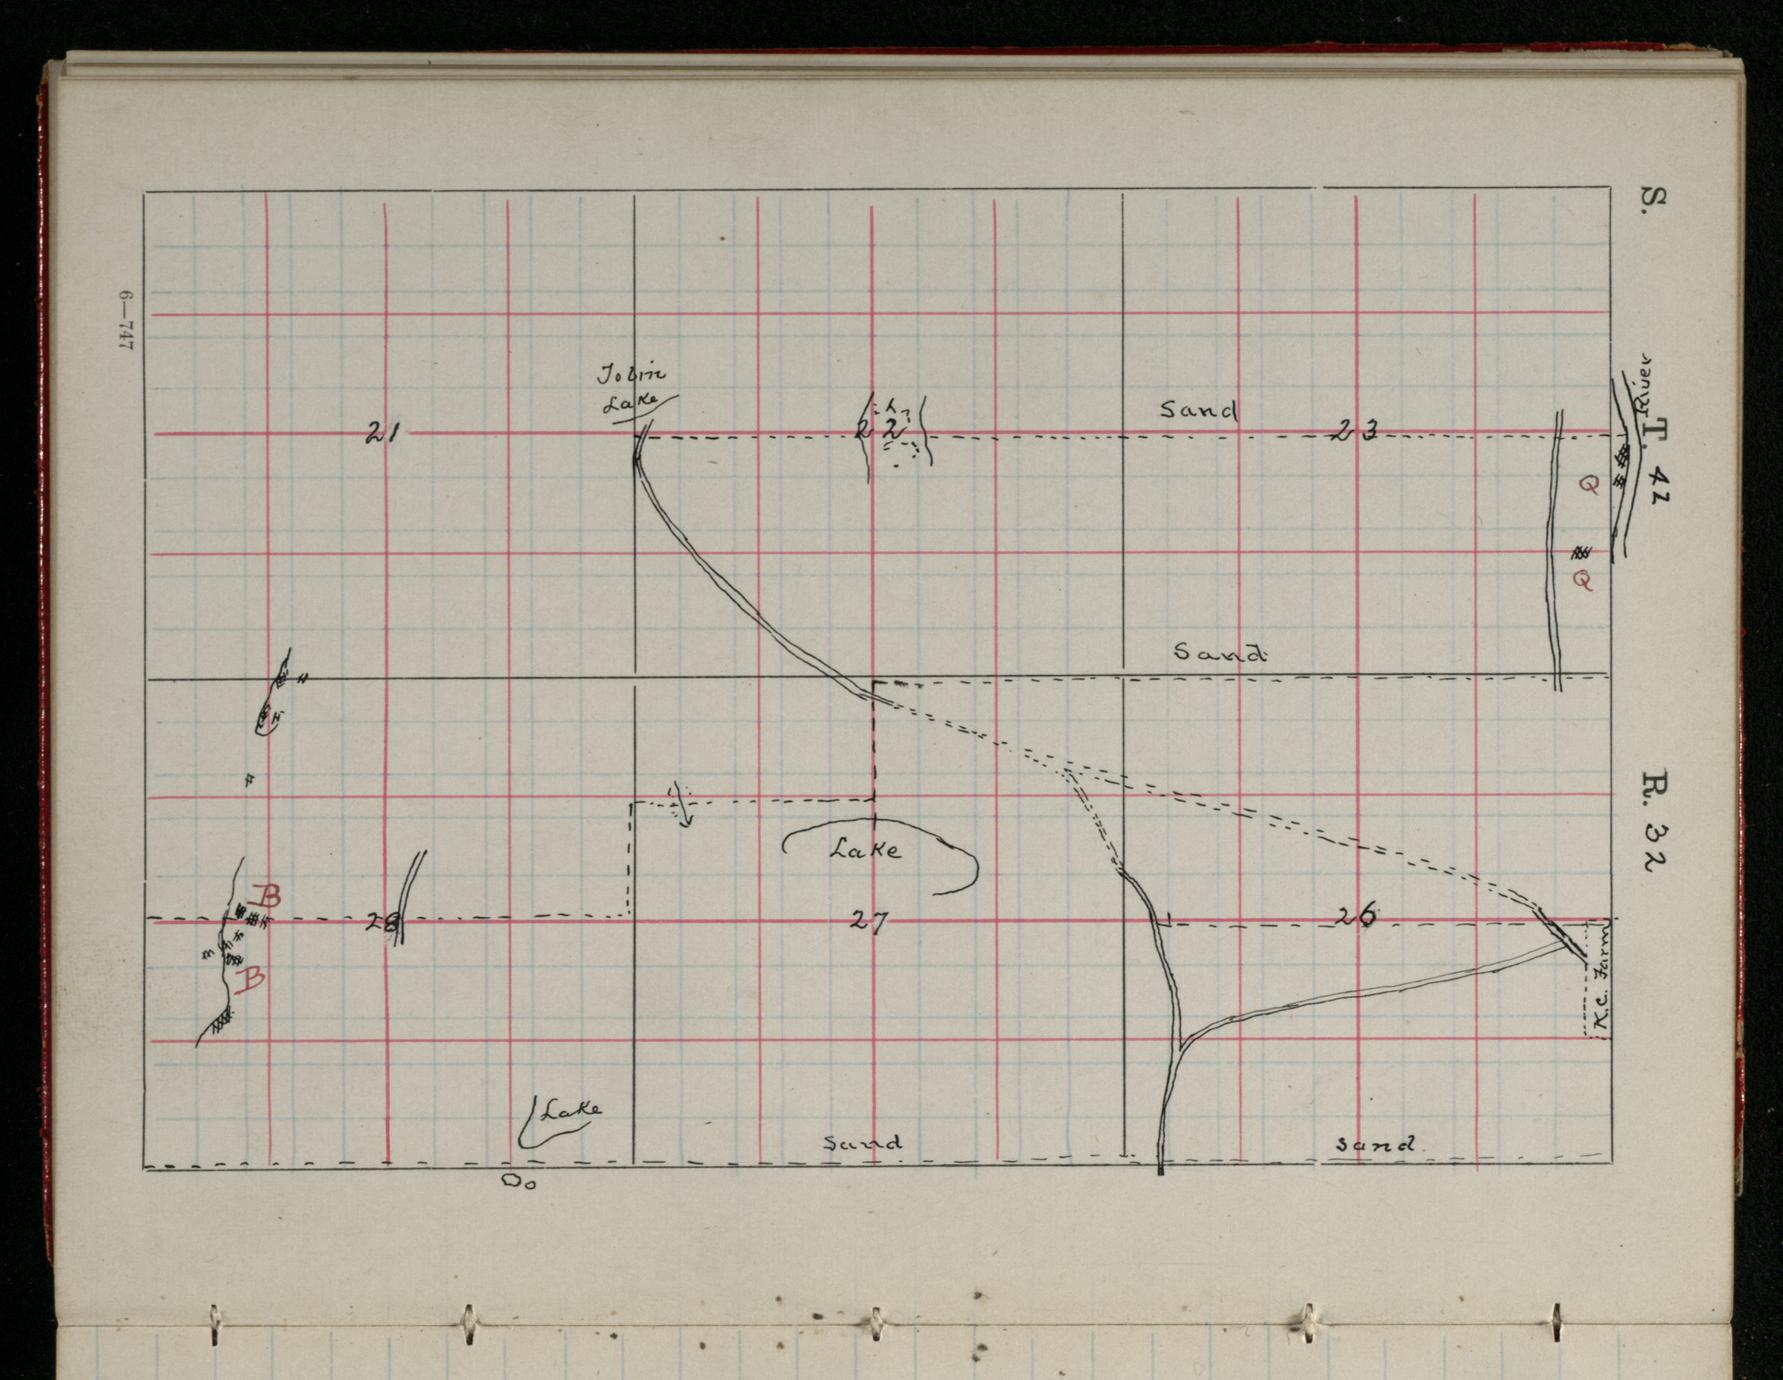 S.
T. 42
R. 32
6—747
River
Tobin
Lake
Sand
21
22
23
Q
Q
Sand
Lake
B
28
27
26
B
K.C. Farm
Lake
Sand
Sand